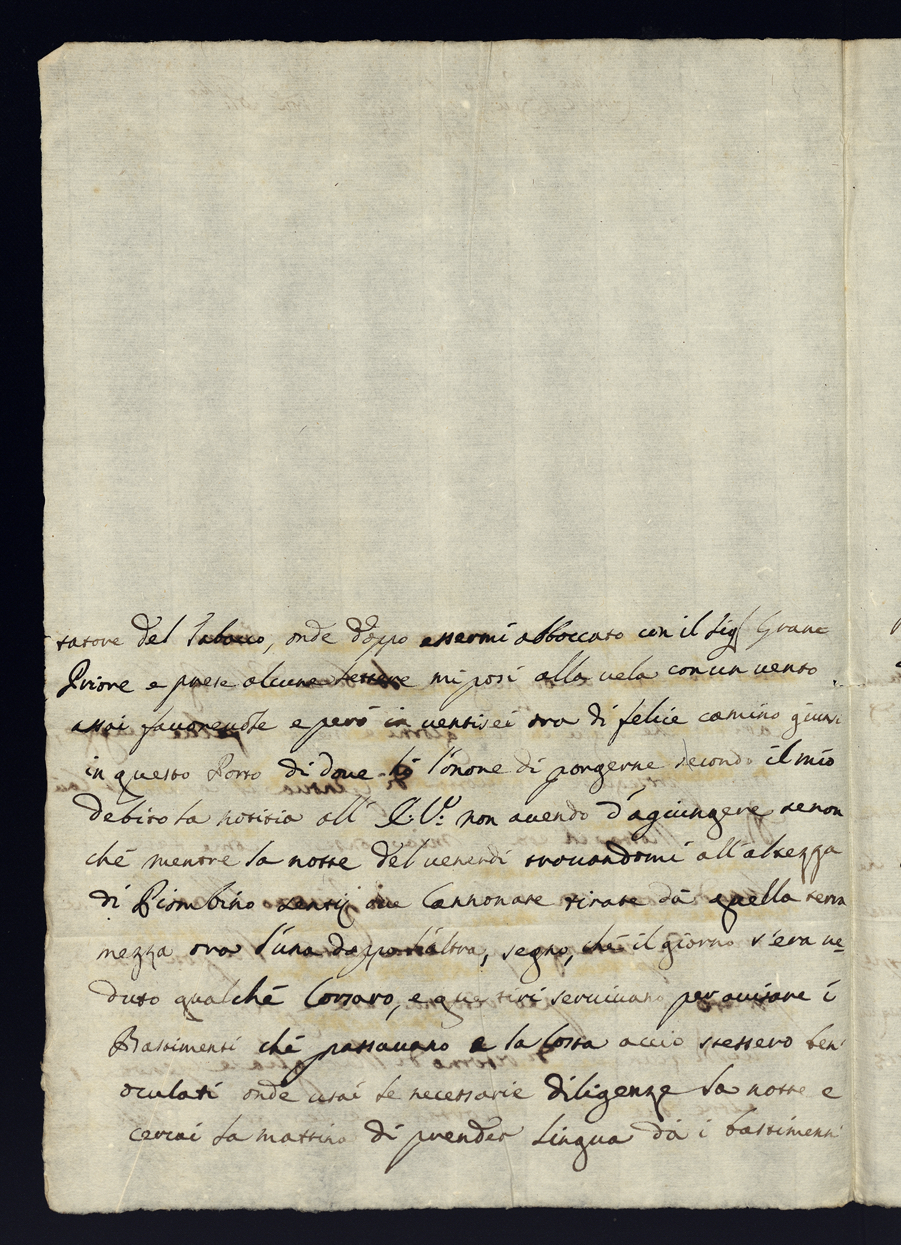 tatore del Tabacco, onde doppo essermi abboccato con il Sig.r Gran
Priore e prese alcune lettere mi posi alla vela con un vento
assai favorevole e però in ventisei ora di felice camino giunsi
in questo Porto di dove hò l'onore di porgerne secondo il mio
debito la notitia all' E: V.a: non avendo d'agiungere senon
ché mentre la notte del venerdì trovandomi all'altezza
di Piombino sentij due Cannonate tirate dà quella terra
mezza ora l'una doppo l'altra, segno, ché il giorno s'era ve=
duto qualché Corsaro, e que tiri servivano per avisare i
Bastimenti ché passavano e la Costa accio stessero ben
oculati onde usai le necessarie diligenze la notte e
cercai la mattina di prender lingua dà i bastimenti